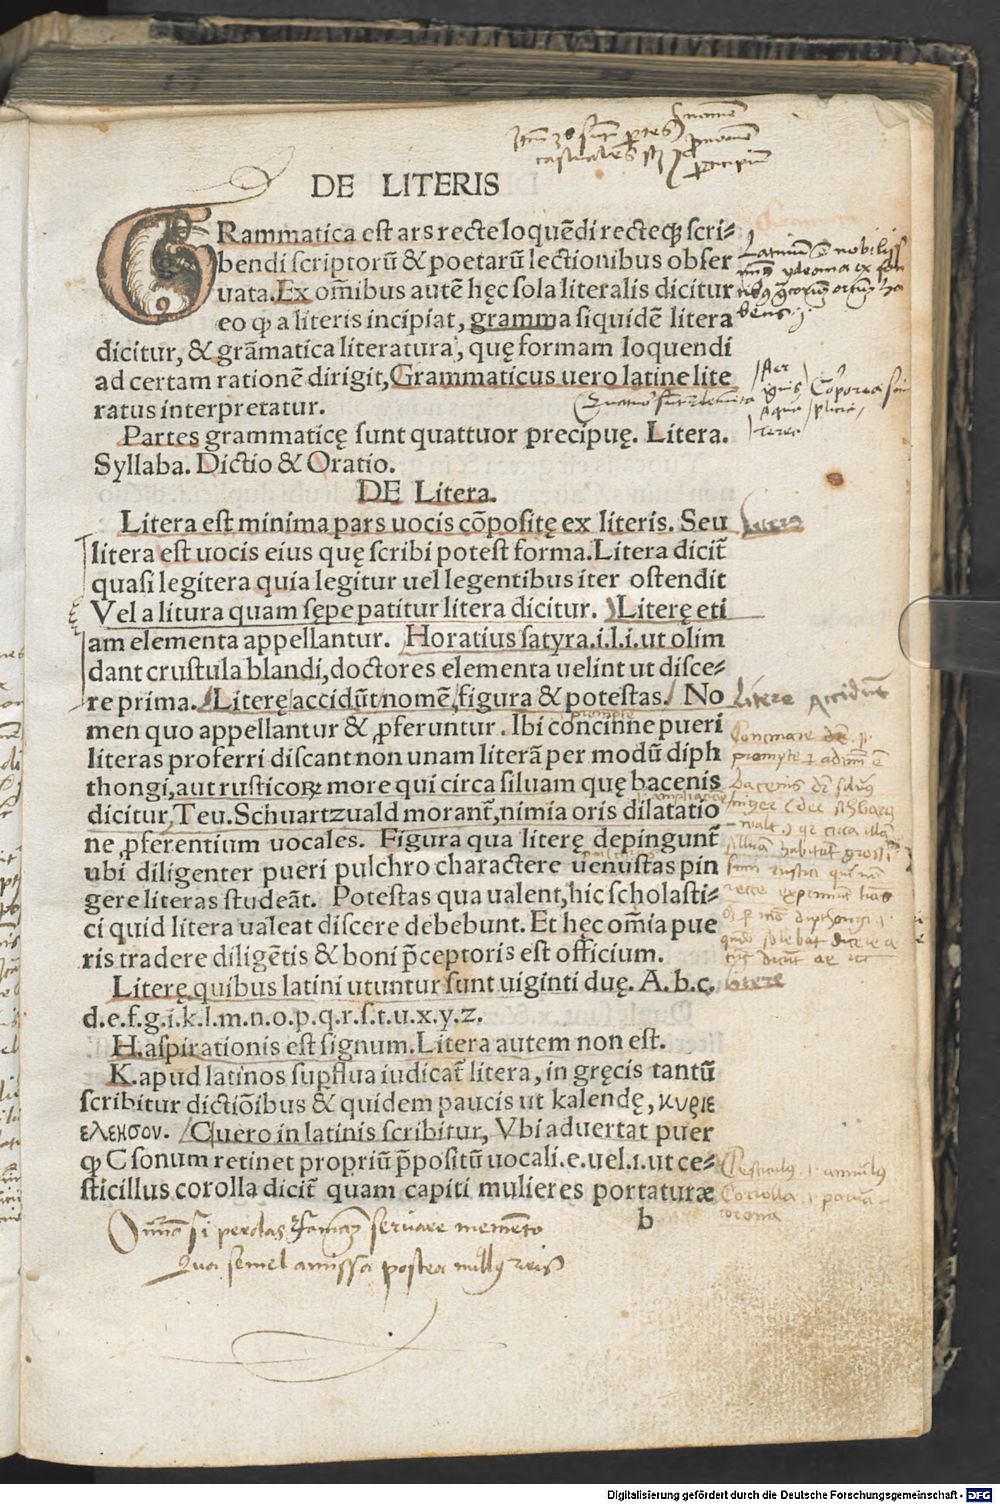 Itm 3o sunt partes nomen
casuales scz pronomen
participium
DE LITERIS
GRammatica est ars recte loquēdi recteqꝫ scri-
bendi scriptorū & poetarū lectionibus obser
uata. Ex om̄ibus autē hęc sola literalis dicitur
eo ꝙ a literis incipiat, gramma siquidē litera
dicitur, & grāmatica literatura, quę formam loquendi
ad certam rationē dirigit, Grammaticus uero latine lite
ratus interpretatur.
Latinum ē nobiliss
mū ydeoma ex fon
tibus grecorum ortum ha
bens
Quatuor sunt elementa
Aer
ignis
Aqua
terra
Corporea sim
plicia
Partes grammaticę sunt quattuor precipuę. Litera.
Syllaba. Dictio & Oratio.
DE Litera.
Litera est minima pars uocis cōpositę ex literis. Seu
litera est uocis eius quę scribi potest forma. Litera dicit̄
quasi legitera quia legitur uel legentibus iter ostendit
Vel a litura quam sępe patitur litera dicitur. Literę eti
am elementa appellantur. Horatius satyra.i.l.i. ut olim
dant crustula blandi, doctores elementa uelint ut disce-
re prima. Literę accidūt nomē, figura & potestas. No
men quo appellantur & ꝓferuntur. Ibi concinne pueri
literas proferri discant non unam literā per modū diph
thongi, aut rusticoꝝ more qui circa siluam quę bacenis
dicitur, Teu. Schuartzuald morant̄, nimia oris dilatatio
ne ꝓferentium uocales. Figura qua literę depingunt̄
ubi diligenter pueri pulchro charactere uenustas pin
gere literas studeāt. Potestas qua ualent, hic scholasti-
ci quid litera ualeat discere debebunt. Et hęc om̄ia pue
ris tradere diligētis & boni p̄ceptoris est officium.
Litera
Litere Accidunt
prompte
Literę quibus latini utuntur sunt uiginti duę. A.b.c.
d.e.f.g.i.k.l.m.n.o.p.q.r.s.t.u.x.y.z.
litere
H. aspirationis est signum. Litera autem non est.
K. apud latinos supflua iudicat̄ litera, in gręcis tantū
scribitur dictiōibus & quidem paucis ut kalendę, κυριε
ελεησον. C uero in latinis scribitur, Vbi aduertat puer
ꝙ C sonum retinet propriū p̄positū uocali.e.uel.i.ut ce-
sticillus corolla dicit̄ quam capiti mulieres portaturæ
b
Corolla .i. parua
corona
Omnia si perdas famam seruare memento
Qua semel amissa postea nullus eris
Digitalisierung gefördert durch die Deutsche Forschungsgemeinschaft - DFG